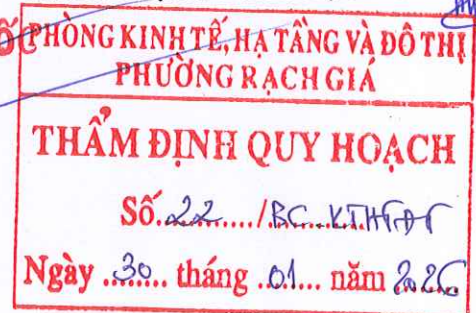 PHÒNG KINH TẾ, HẠ TẦNG VÀ ĐÔ THỊ
PHƯỜNG RẠCH GIÁ
THẨM ĐỊNH QUY HOẠCH
Số..22...../BC..KTHTĐT
Ngày ..30... tháng ..01... năm 2026